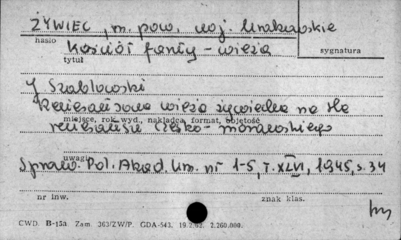 ŻYWIEC, m. pow. woj. krakowskie
hasło
Kościół farny - wieża
tytuł
sygnatura
J Szablowski
Renesansowa wieża żywiecka na tle
miejsce, rok wyd., nakładca, format, objętość
renesansu czesko-morawskiego
uwagi
Spraw. Pol. Akad. Um. nr 1-5, T. XLVI, 1945, s. 34
nr inw.
znak klas.
CWD. B-15a Zam. 363/ZW/P. GDA-543. 2.260.000.